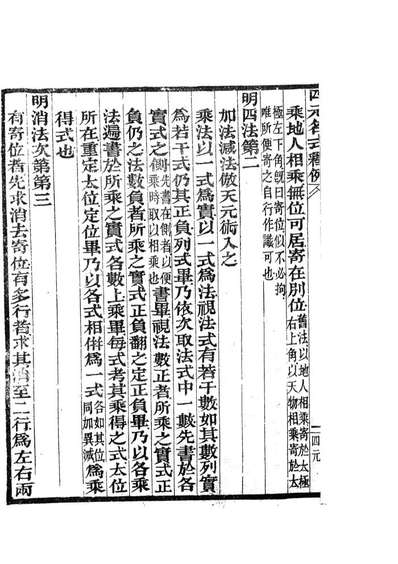 四元名式釋例
一四元
乘地人相乘無位可居寄在別位舊法以地人相乘寄於太極右上角以天物相乘寄於太
極左下角旣曰寄位似不必拘
唯所便寄之自行作識可也
明四法第二
加法減法倣天元術入之
乘法以一式爲實以一式爲法視法式有若干數如其數列實
爲若干式仍其正負列式畢乃依次取法式中一數先書於各
實式之側先書在側者以便乘時取以相乘書畢視法數正者所乘之實式正
負仍之法數負者所乘之實式正負翻之定正負畢乃以各乘
法遍書於所乘之實式各數上乘畢每式考其乘得之式太位
所在重定太位定位畢乃以各式相併爲一式各如其位同加異減爲乘
得式也
明消法次第第三
有寄位者先求消去寄位有多行者求其消至二行爲左右兩